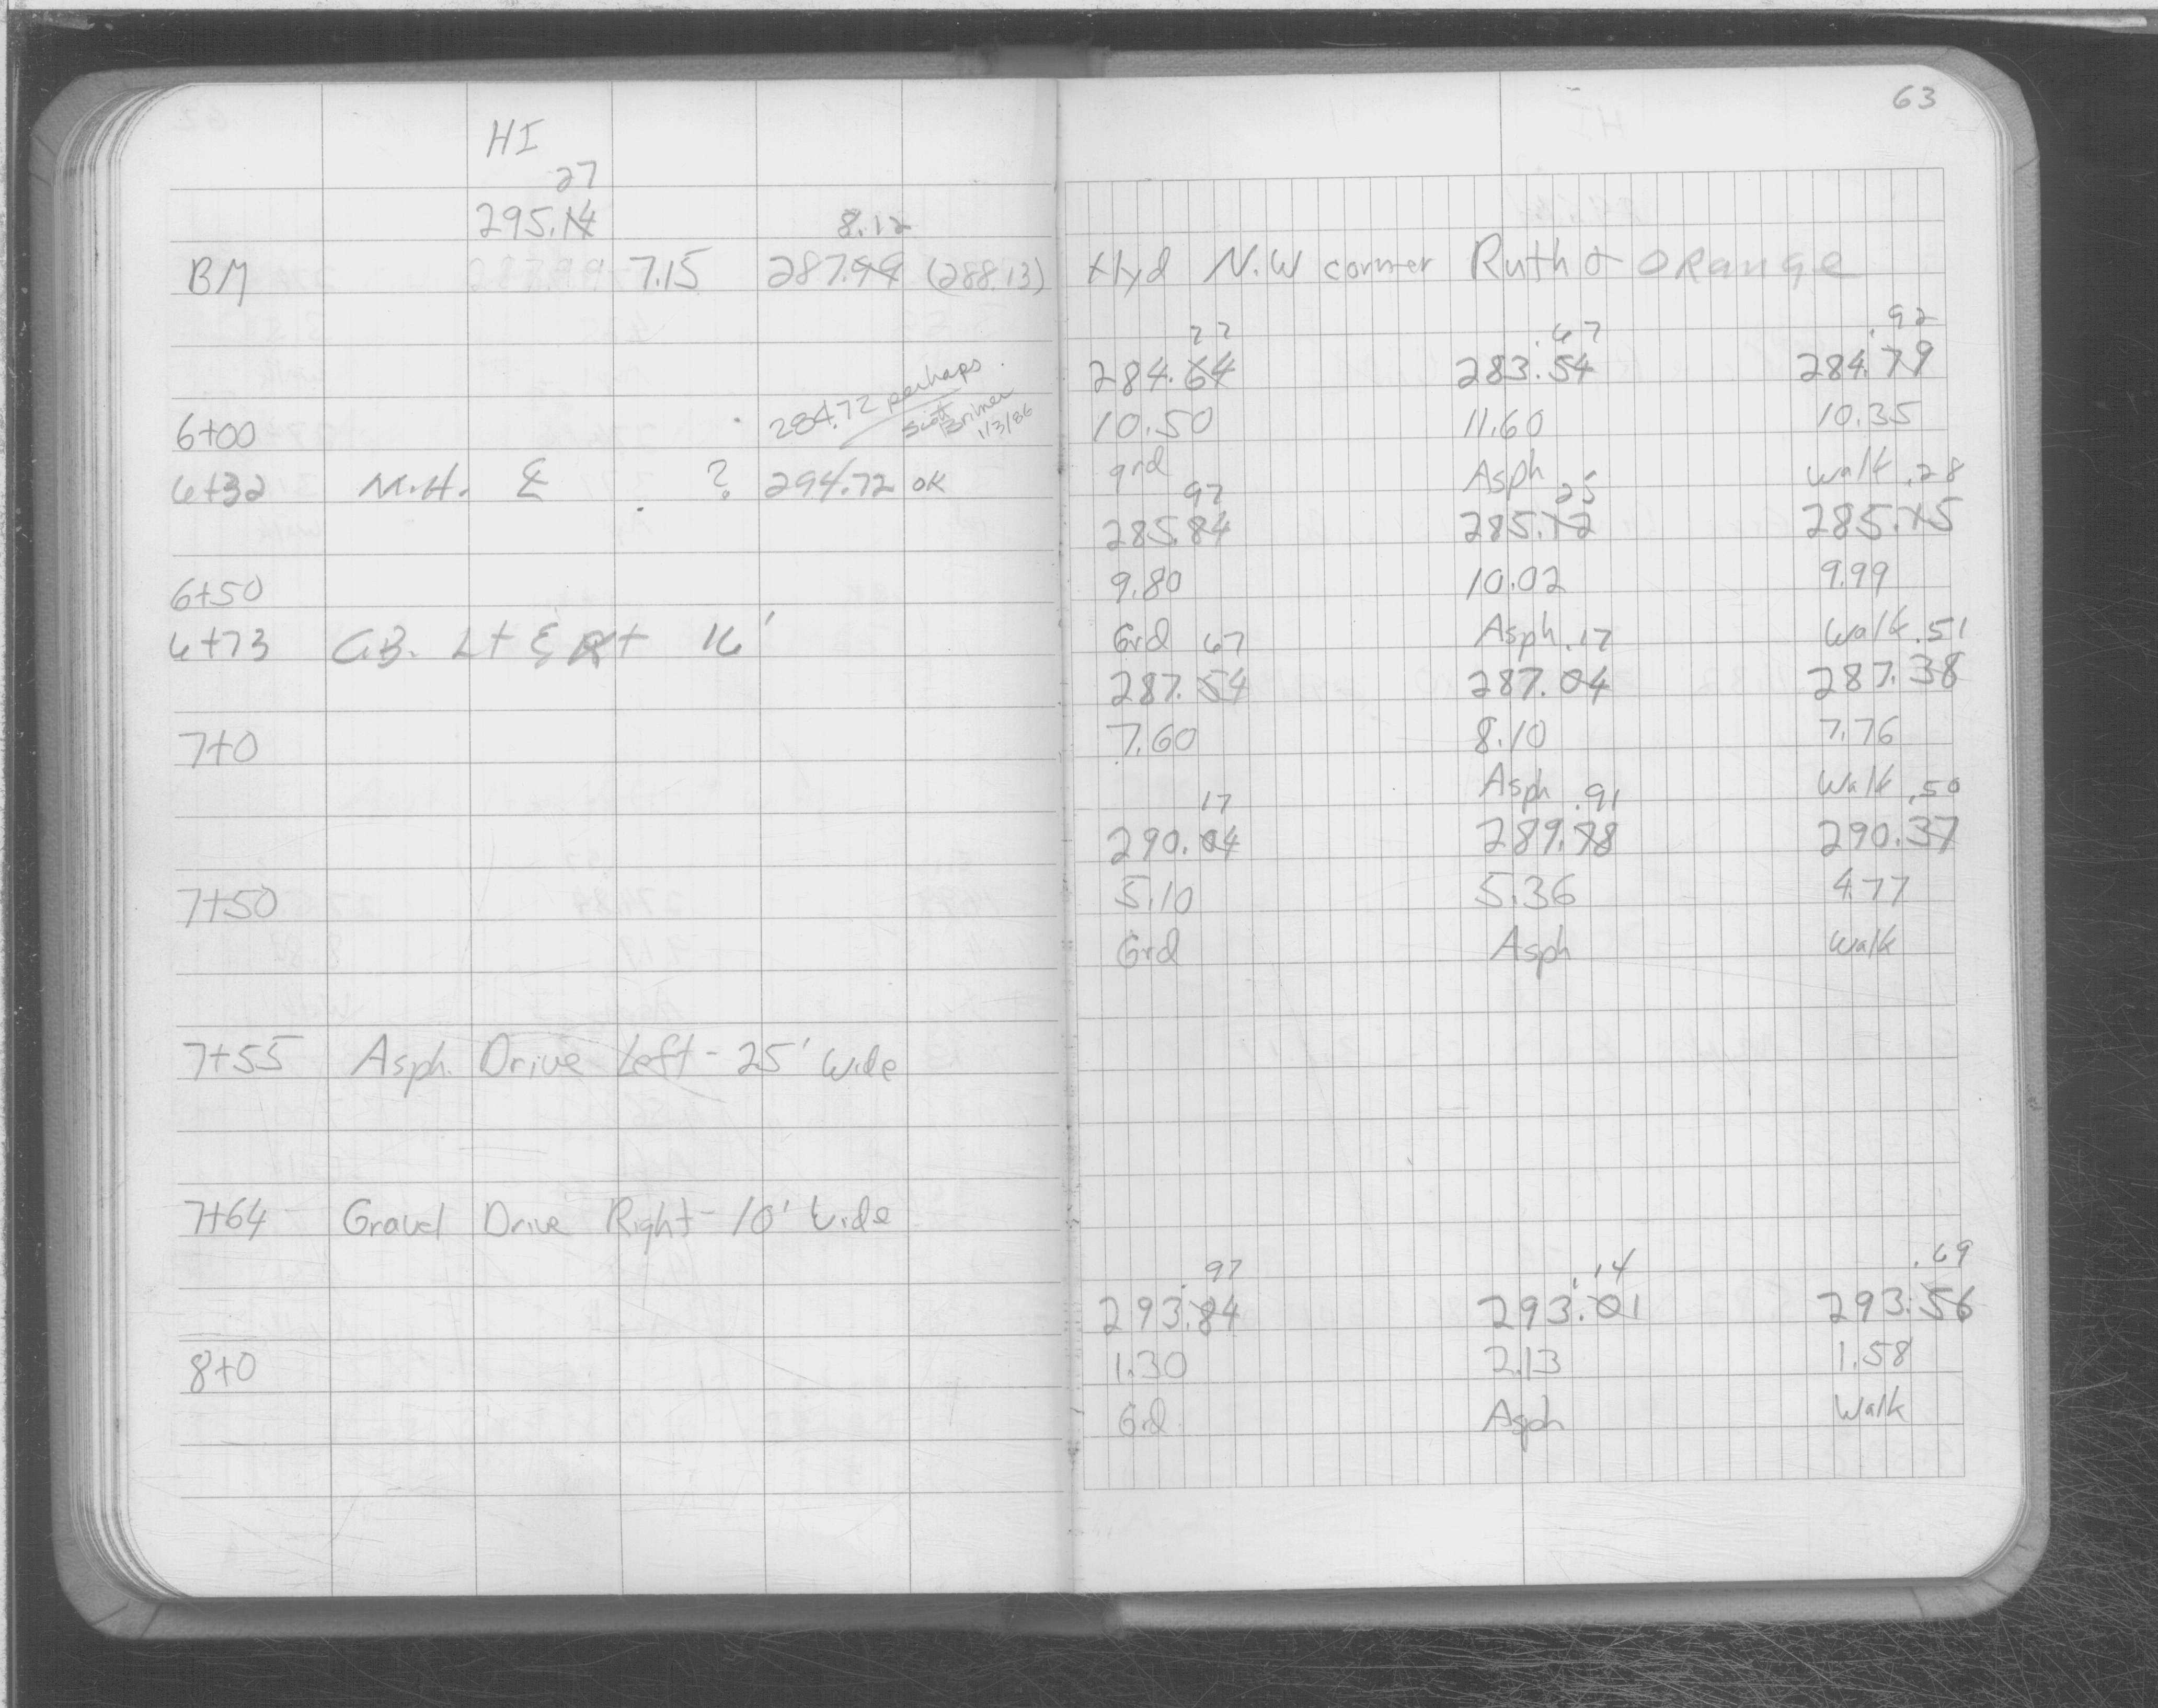 63
HI
27
295.14
8.12
BM 7.15 287.99 (288.13) Hyd N.W corner Ruth & Orange
77 .67 .92
284.64 283.54 284.79
284.72 perhaps
Scott
1/3/86
6+00 10.50 11.60 10.35
grd Asph walk .28
6+32 M.H. ₤ ? 294.72 OK
97 25
285.84 285.12 285.15
6+50 9.80 10.02 9.99
6+73 C.B. Lt & Rt 16' Grd 67 Asph .17 Walk .51
287.54 287.04 287.38
7+0 7.60 8.10 7.76
Asph .91 Walk .50
17
290.04 289.78 290.37
7+50 5.10 5.36 4.77
Grd Asph walk
7+55 Asph. Drive Left - 25' wide
7+64 Gravel Drive Right - 10' wide
.97 .14 .69
293.84 293.01 293.56
8+0 1.30 2.13 1.58
Grd Asph Walk